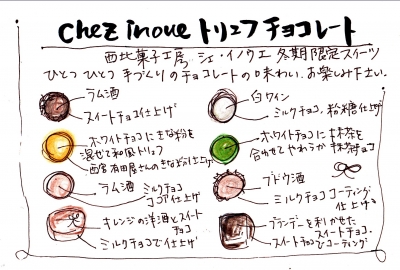 chez inoue トリュフチョコレート
西北菓子工房 シェ・イノウエ 冬期限定スイーツ
ひとつ ひとつ 手づくりのチョコレートの味わい、お楽しみ下さい。
ラム酒
スイートチョコ仕上げ
ホワイトチョコにきな粉を
混ぜて和風トリュフ
西宮有田屋さんのきな粉仕上げ
ラム酒
ミルクチョコ
ココア仕上げ
オレンジの洋酒とスイート
チョコ
ミルクチョコで仕上げ
白ワイン
ミルクチョコ、粉糖仕上げ
ホワイトチョコに抹茶を
合わせてやわらか抹茶チョコ
ブドウ酒
ミルクチョココーティング
仕上げ
ブランデーを利かせた
スイートチョコ、
スイートチョコでコーティング